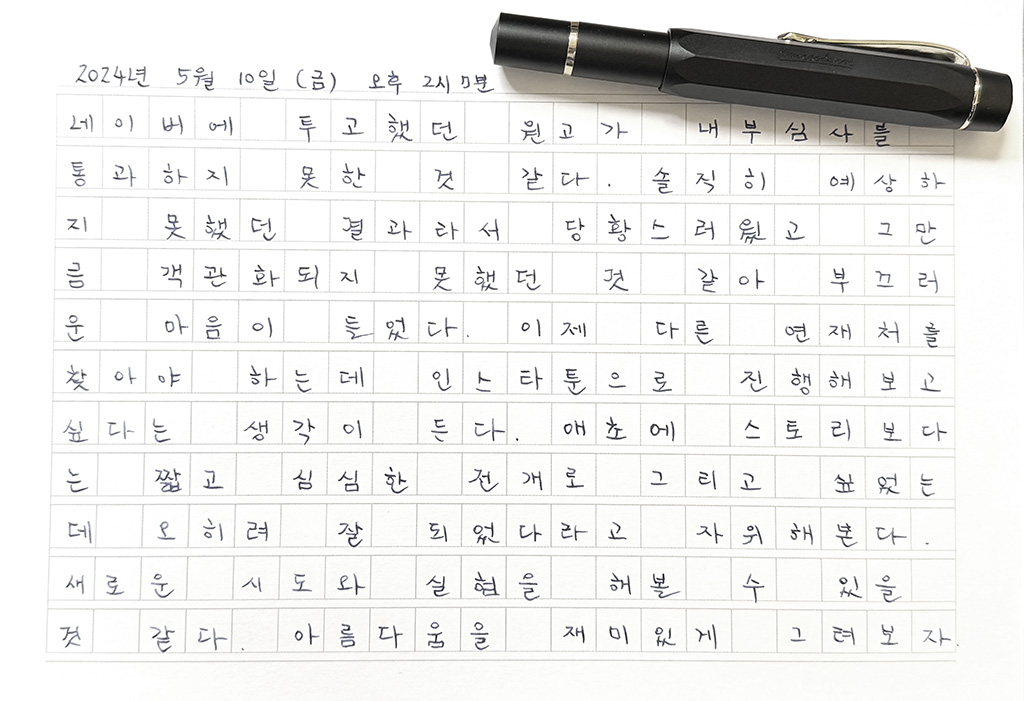 2024년 5월 10일 (금) 오후 2시 7분
네이버에 투고했던 원고가 내부심사를
통과하지 못한 것 같다. 솔직히 예상하
지 못했던 결과라서 당황스러웠고 그만
큼 객관화되지 못했던 것 같아 부끄러
운 마음이 들었다. 이제 다른 연재처를
찾아야 하는데 인스타툰으로 진행해보고
싶다는 생각이 든다. 애초에 스토리보다
는 짧고 심심한 전개로 그리고 싶었는
데 오히려 잘 되었다라고 자위해본다.
새로운 시도와 실험을 해볼 수 있을
것 같다. 아름다움을 재미있게 그려보자.